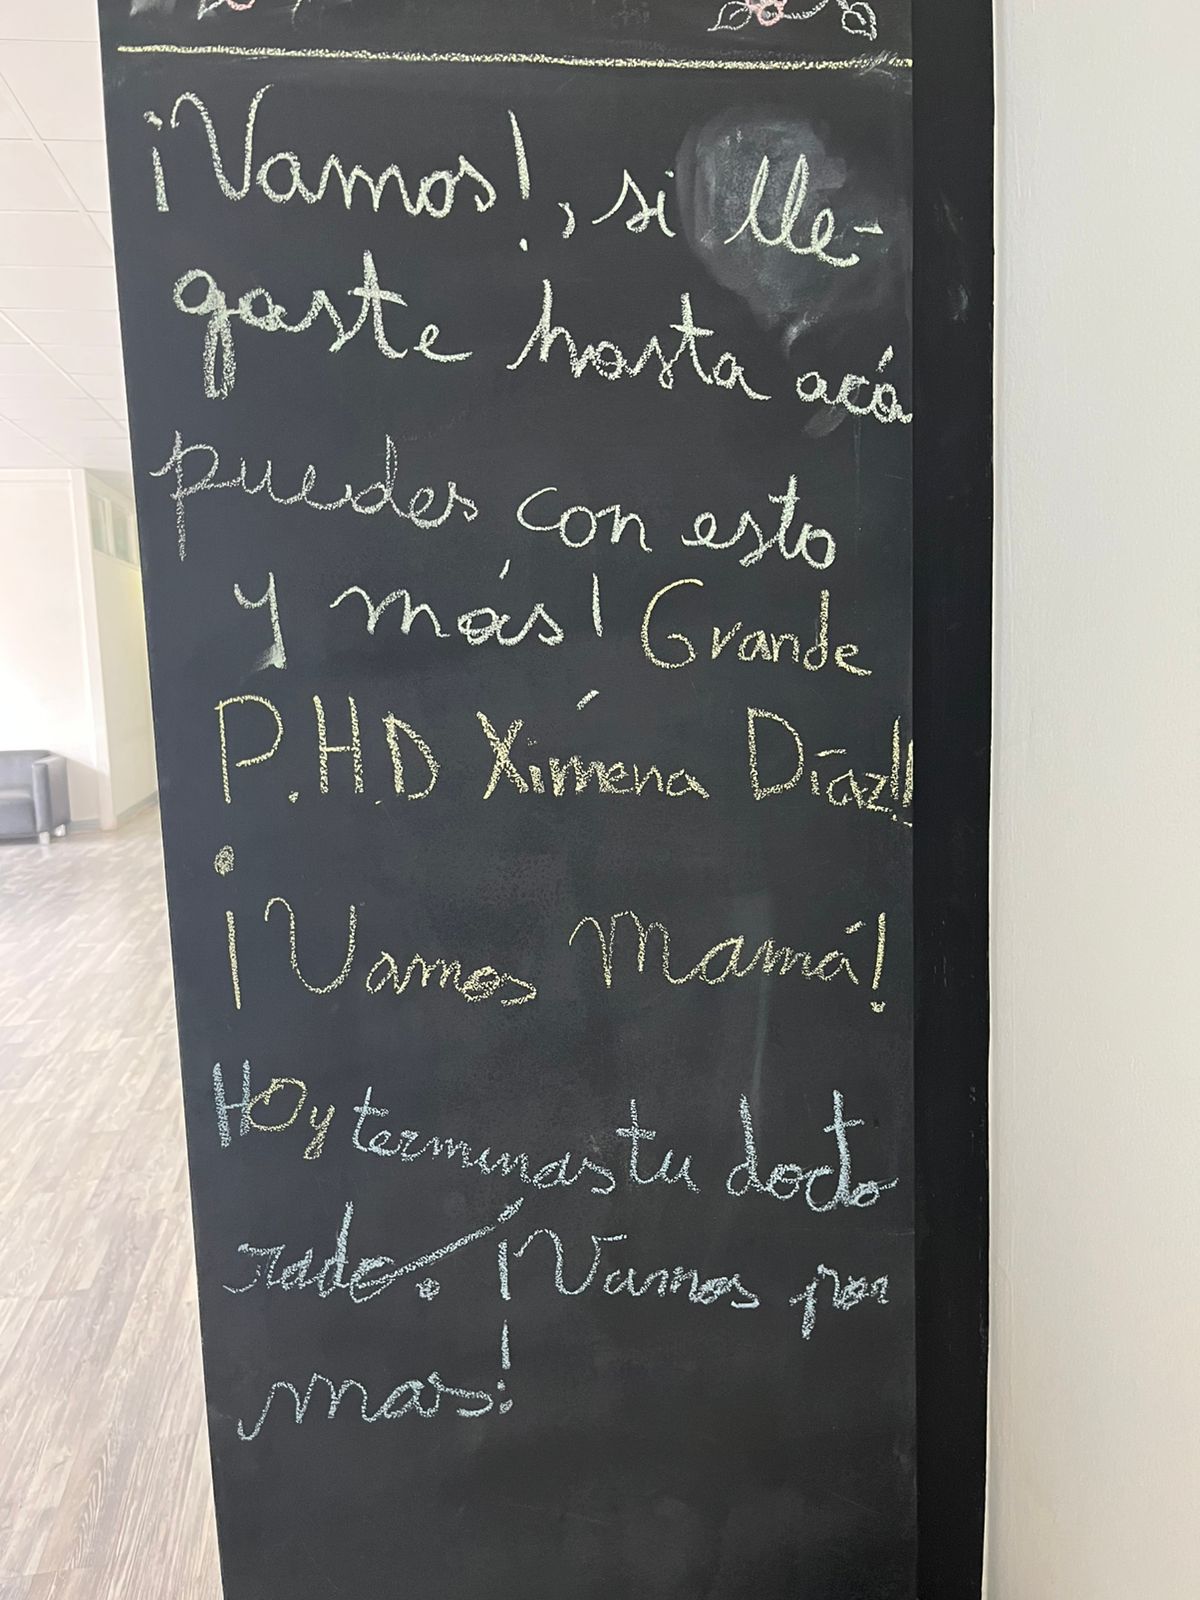 ¡Vamos!, si lle-
gaste hasta acá
puedes con esto
y más! Grande
P.HD Ximena Díaz!!
¡Vamos Mamá!
Hoy terminas tu docto
rado. ¡Vamos por
mas!